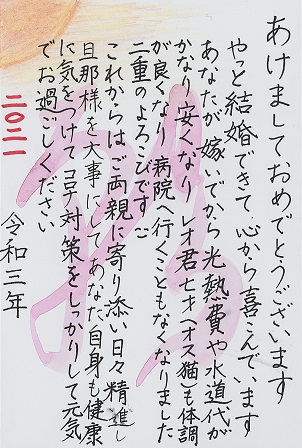 あけましておめでとうございます
やっと結婚できて、心から喜こんでいます
あなたが嫁いでから光熱費や水道代が
かなり安くなり レオ君七才(オス猫)も体調
が良くなり 病院へ行くこともなくなりました
二重のよろこびです
これからはご両親に寄り添い日々精進し
旦那様を大事にしてあなた自身も健康
に気をつけてコロナ対策をしっかりして元気
でお過ごしください
二〇二一
令和三年